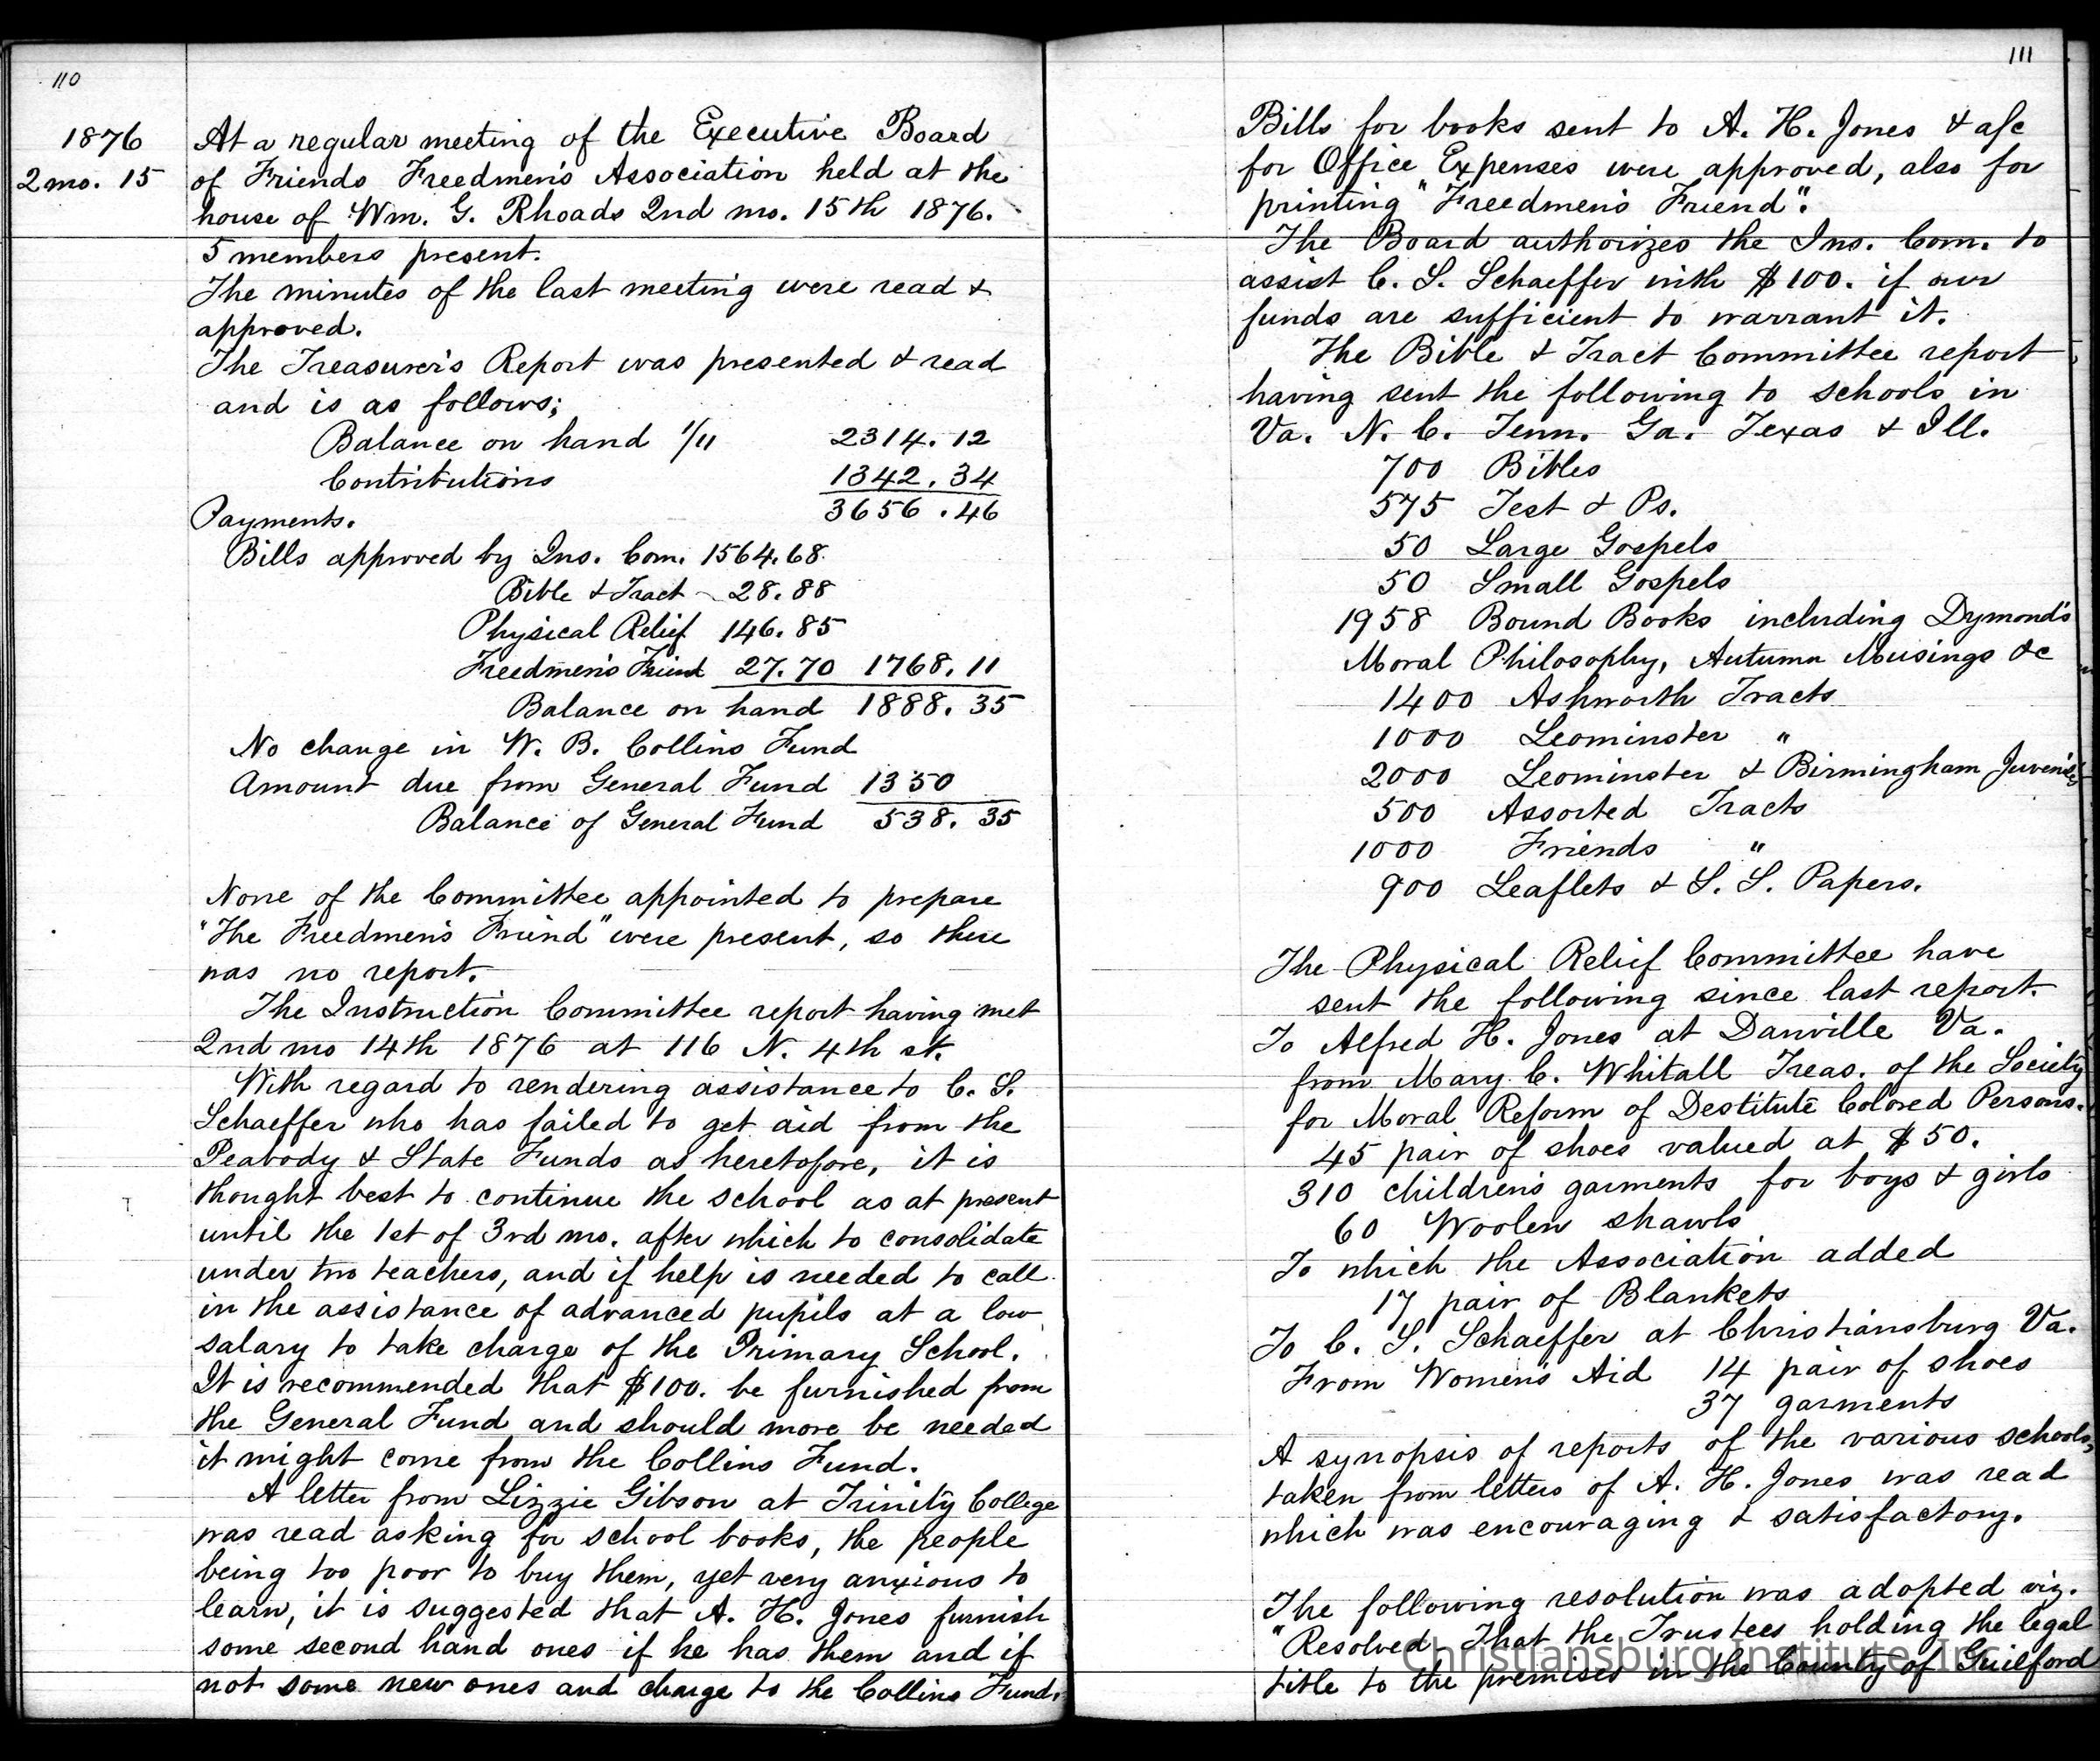 110
1876
2 mo. 15
At a regular meeting of the Executive Board
of Friends Freedmen's Association held at the
house of Wm. G. Rhoads 2nd mo. 15th 1876.
5 members present.
The minutes of the last meeting were read &
approved.
The Treasurer's Report was presented & read
and is as follows;
Balance on hand 1/11 2314.12
Contributions 1342.34
3656.46
Payments.
Bills approved by Ins. Com. 1564.68
Bible & Tract 28.88
Physical Relief 146.85
Freedmen's Friend 27.70 1768.11
Balance on hand 1888.35
No change in W. B. Collins Fund
Amount due from General Fund 1350
Balance of General Fund 538.35
None of the Committee appointed to prepare
"The Freedmen's Friend" were present, so there
was no report.
The Instruction Committee report having met
2nd mo 14th 1876 at 116 N. 4th st.
With regard to rendering assistance to C. S.
Schaeffer who has failed to get aid from the
Peabody & State Funds as heretofore, it is
thought best to continue the school as at present
until the 1st of 3rd mo. after which to consolidate
under two teachers, and if help is needed to call
in the assistance of advanced pupils at a low
salary to take charge of the Primary School.
It is recommended that $100. be furnished from
the General Fund and should more be needed
it might come from the Collins Fund.
A letter from Lizzie Gibson at Trinity College
was read asking for school books, the people
being too poor to buy them, yet very anxious to
learn, it is suggested that A. H. Jones furnish
some second hand ones if he has them and if
not some new ones and charge to the Collins Fund.
111
Bills for books sent to A. H. Jones & a/c
for Office Expenses were approved, also for
printing "Freedmen's Friend".
The Board authorizes the Ins. Com. to
assist C. S. Schaeffer with $100. if our
funds are sufficient to warrant it.
The Bible & Tract Committee report
having sent the following to schools in
Va. N. C. Tenn. Ga. Texas & Ill.
700 Bibles
575 Test & Ps.
50 Large Gospels
50 Small Gospels
1958 Bound Books including Dymond's
Moral Philosophy, Autumn Musings &c
1400 Ashworth Tracts
1000 Leominster "
2000 Leominster & Birmingham Juveniles
500 Assorted Tracts
1000 Friends "
900 Leaflets & S. S. Papers.
The Physical Relief Committee have
sent the following since last report.
To Alfred H. Jones at Danville Va.
from Mary C. Whitall Treas. of the Society
for Moral Reform of Destitute Colored Persons.
45 pair of shoes valued at $50.
310 children's garments for boys & girls
60 Woolen shawls
To which the Association added
17 pair of Blankets
To C. S. Schaeffer at Christiansburg Va.
From Women's Aid 14 pair of shoes
37 garments
A synopsis of reports of the various schools,
taken from letters of A. H. Jones was read
which was encouraging & satisfactory.
The following resolution was adopted viz.
"Resolved That the Trustees holding the legal
title to the premises in the County of Guilford
Christiansburg Institute, Inc.